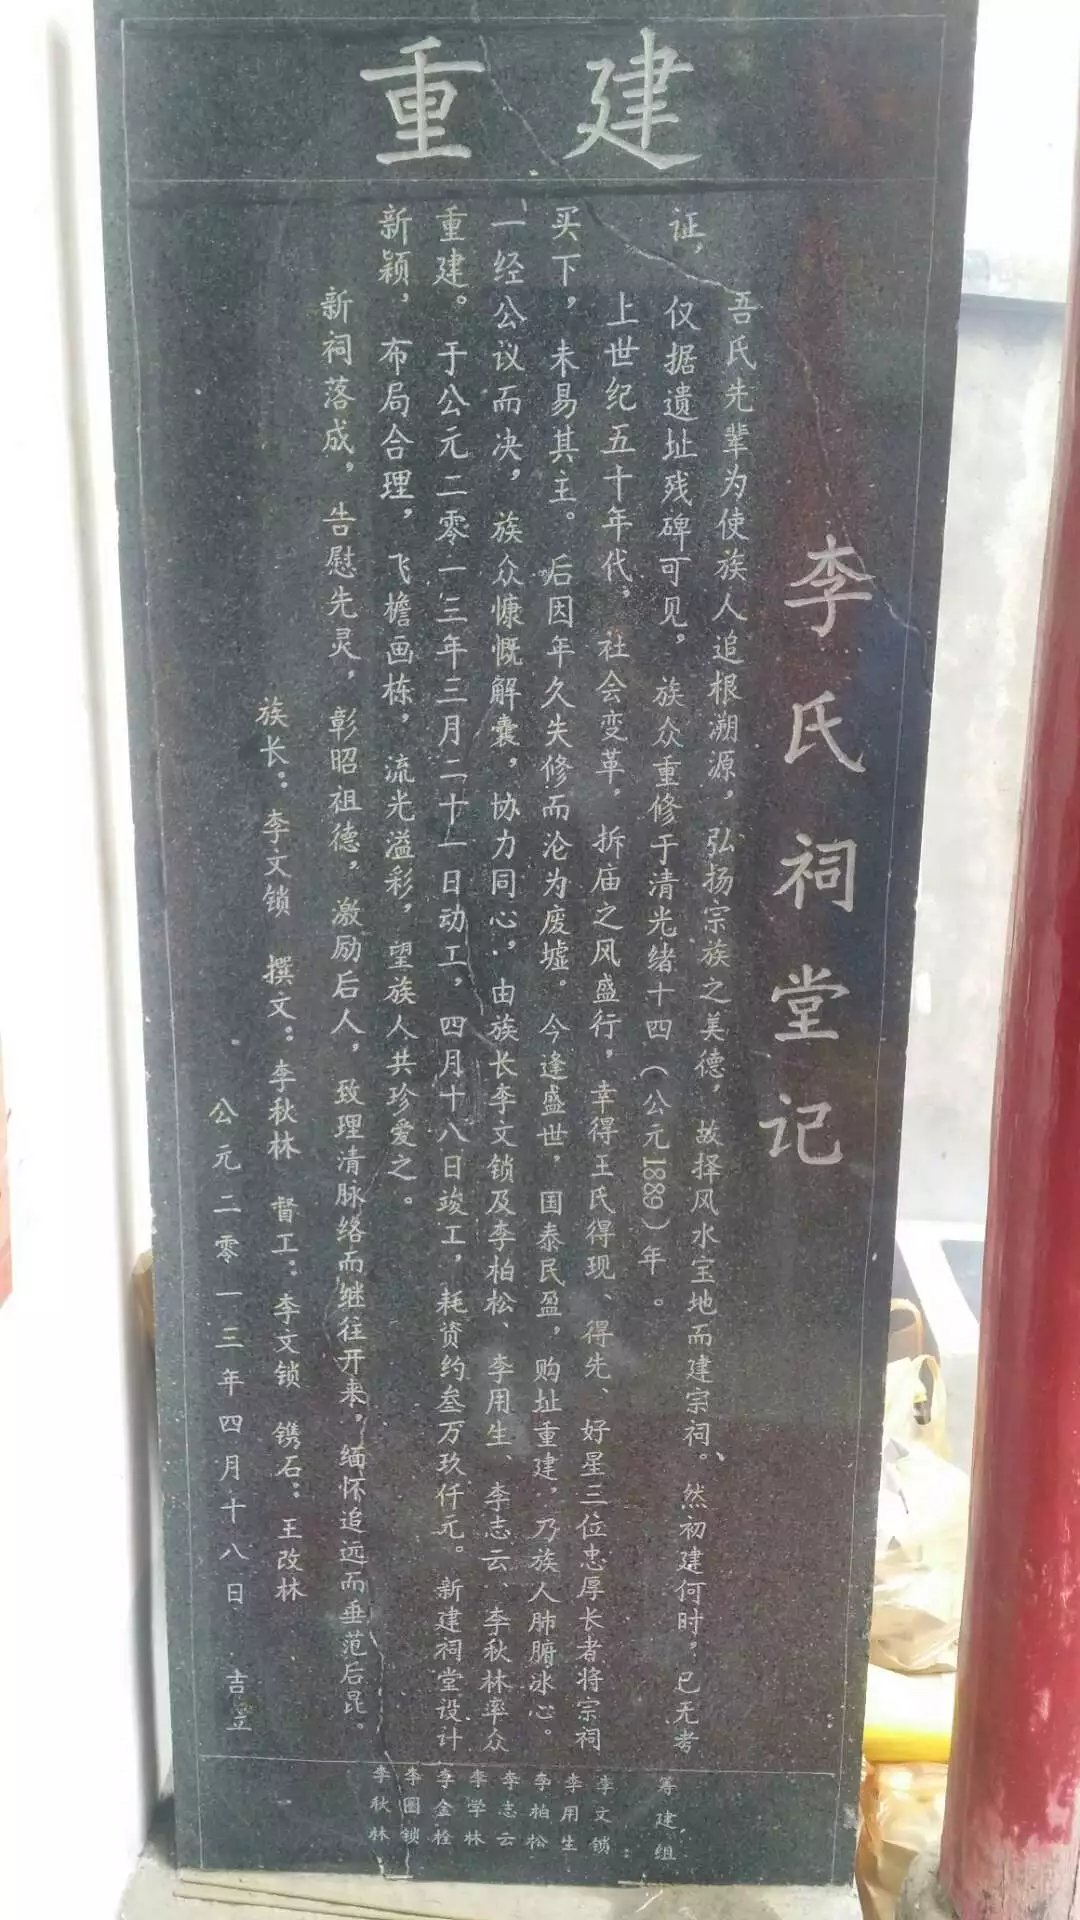 重建
李氏祠堂记
吾氏先辈为使族人追根溯源，弘扬宗族之美德，故择风水宝地而建宗祠。然初建何时，已无考
证，仅据遗址残碑可见，族众重修于清光绪十四（公元1889）年。
上世纪五十年代，社会变革，拆庙之风盛行，幸得王氏得现、得先、好星三位忠厚长者将宗祠
买下，未易其主。后因年久失修而沦为废墟。今逢盛世，国泰民盈，购址重建，乃族人肺腑冰心。
一经公议而决，族众慷慨解囊，协力同心，由族长李文锁及李柏松、李用生、李志云、李秋林率众
重建。于公元二零一三年三月二十一日动工，四月十八日竣工，耗资约叁万玖仟元。新建祠堂设计
新颖，布局合理，飞檐画栋，流光溢彩，望族人共珍爱之。
新祠落成，告慰先灵，彰昭祖德，激励后人，致理清脉络而继往开来，缅怀追远而垂范后昆。
族长：李文锁 撰文：李秋林 督工：李文锁 镌石：王改林
公元二零一三年四月十八日 吉立
筹建组
李文锁
李用生
李柏松
李志云
李学林
李金栓
李圈锁
李秋林